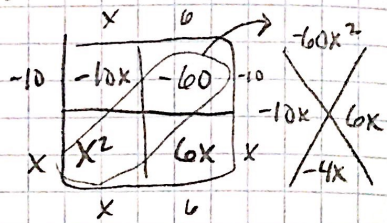 x 6
-10 -10x -60 -10
x x² 6x x
x 6
-60x²
-10x 6x
-4x